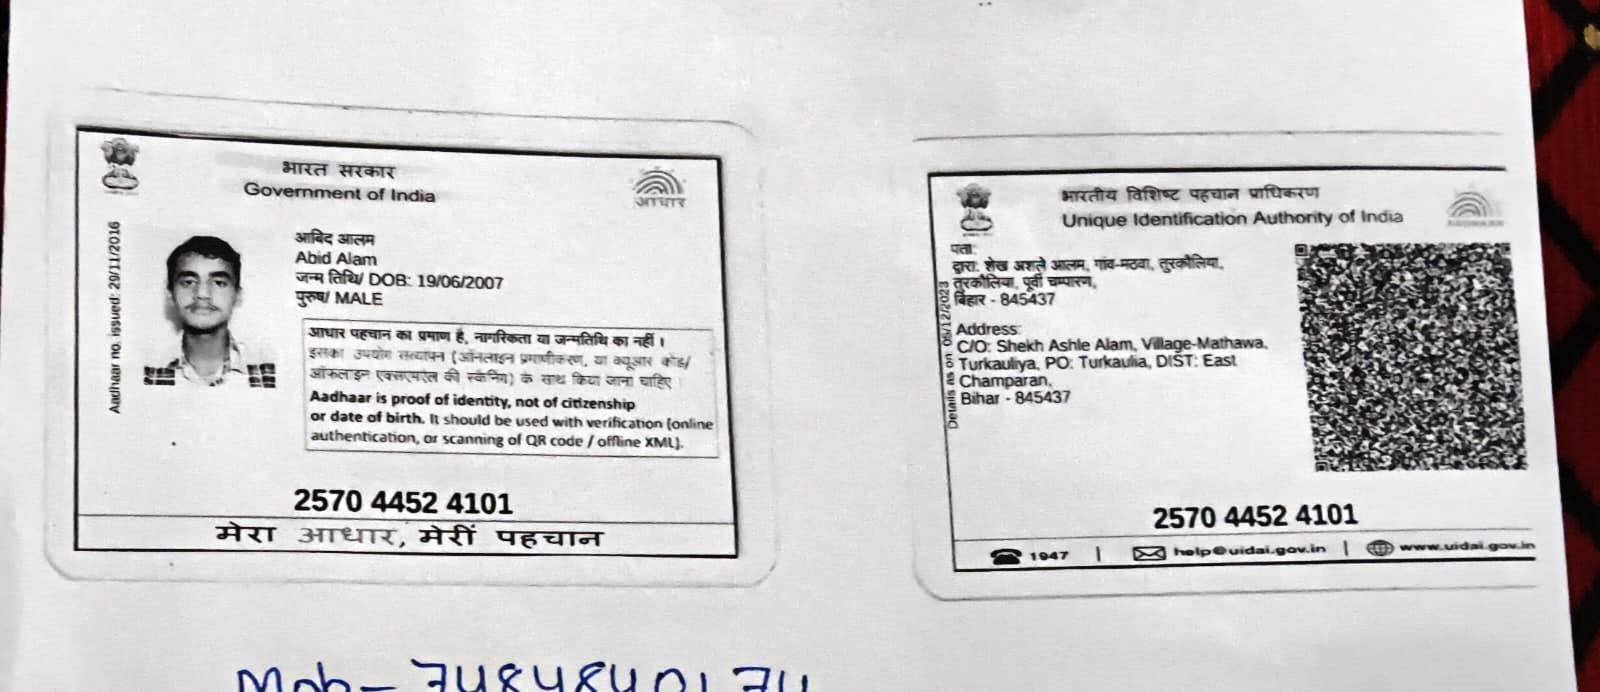 भारत सरकार
Government of India
आधार
Aadhaar no. issued: 29/11/2016
आबिद आलम
Abid Alam
जन्म तिथि/ DOB: 19/06/2007
पुरुष/ MALE
आधार पहचान का प्रमाण है, नागरिकता या जन्मतिथि का नहीं ।
इसका उपयोग सत्यापन (ऑनलाइन प्रमाणीकरण, या क्यूआर कोड/
ऑफलाइन एक्सएमएल की स्कैनिंग) के साथ किया जाना चाहिए ।
Aadhaar is proof of identity, not of citizenship
or date of birth. It should be used with verification (online
authentication, or scanning of QR code / offline XML).
2570 4452 4101
मेरा आधार, मेरी पहचान
भारतीय विशिष्ट पहचान प्राधिकरण
Unique Identification Authority of India
AADHAAR
Details as on: 05/12/2023
पता:
द्वारा: शेख अशले आलम, गांव-मठवा, तुरकौलिया,
तुरकौलिया, पूर्वी चम्पारण,
बिहार - 845437
Address:
C/O: Shekh Ashle Alam, Village-Mathawa,
Turkauliya, PO: Turkaulia, DIST: East
Champaran,
Bihar - 845437
2570 4452 4101
1947 | help@uidai.gov.in | www.uidai.gov.in
Mob-